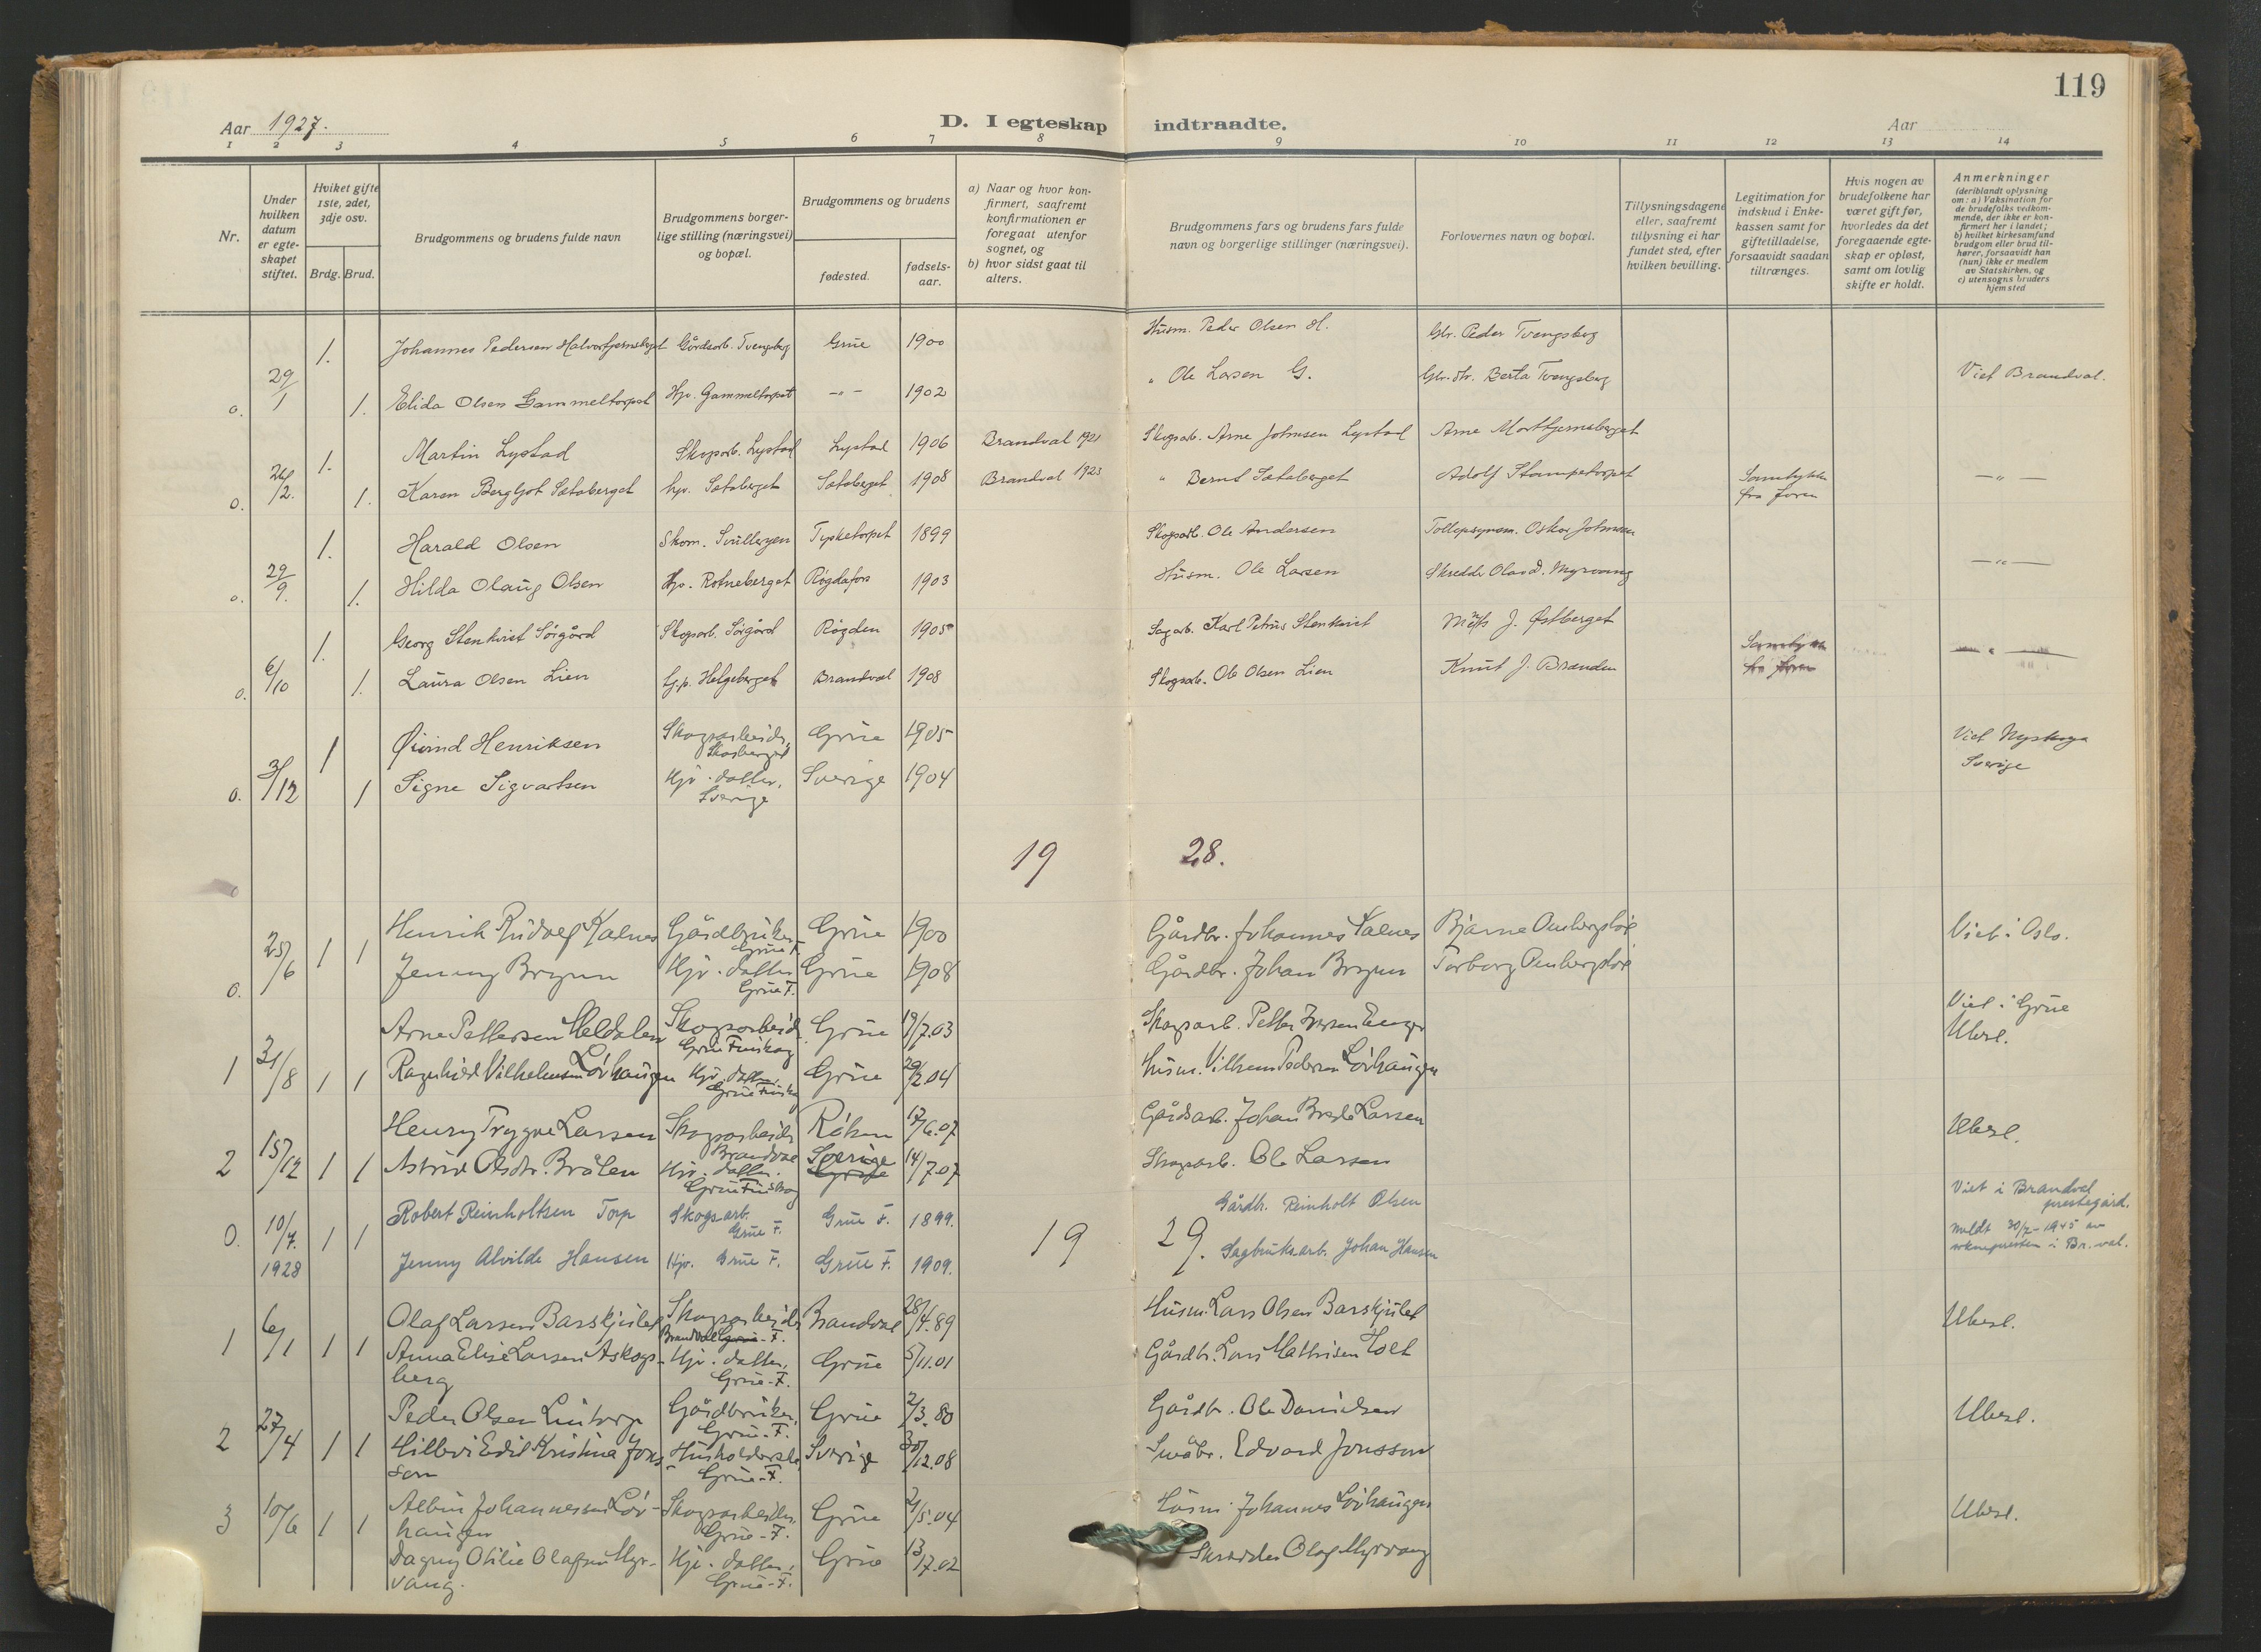 119
Aar 1927.
D. I egteskap indtraadte.
Aar
1 2 3 4 5 6 7 8 9 10 11 12 13 14
Nr.
Under hvilken datum er egteskapet stiftet.
Hvilket gifte 1ste, 2det, 3dje osv.
Brdg. Brud.
Brudgommens og brudens fulde navn
Brudgommens borgerlige stilling (næringsvei) og bopæl.
Brudgommens og brudens
fødested.
fødselsaar.
a) Naar og hvor konfirmert, saafremt konfirmationen er foregaat utenfor sognet, og
b) hvor sidst gaat til alters.
Brudgommens fars og brudens fars fulde navn og borgerlige stillinger (næringsvei).
Forlovernes navn og bopæl.
Tillysningsdagene eller, saafremt tillysning ei har fundet sted, efter hvilken bevilling.
Legitimation for indskud i Enkekassen samt for giftetilladelse, forsaavidt saadan tiltrænges.
Hvis nogen av brudefolkene har været gift før, hvorledes da det foregaaende egteskap er opløst, samt om lovlig skifte er holdt.
Anmerkninger (deriblandt oplysning om: a) Vaksination for de brudefolks vedkommende, der ikke er konfirmert her i landet; b) hvilket kirkesamfund brudgom eller brud tilhører, forsaavidt han (hun) ikke er medlem av Statskirken, og c) utensogns bruders hjemsted
1. Johannes Pedersen Halvortjernsberget Gårdsarb. Tvengsberg Grue 1900 Husm. Peder Olsen H. Gbr. Peder Tvengsberg
o. 29/1 1. Elida Olsen Gammeltorpet Hjv. Gammeltorpet -"- 1902 " Ole Larsen G. Gbr. dtr. Berta Tvengsberg Viet Brandval.
1. Martin Lystad Skogsarb. Lystad Lystad 1906 Brandval 1921 Skogsarb. Arne Johnsen Lystad Arne Morttjernsberget
o. 26/2. 1. Karen Bergljot Sætaberget hjv. Sætaberget Sætaberget 1908 Brandval 1923 " Bernt Sætaberget Adolf Stampetorpet Samtykke fra foren -"-
1. Harald Olsen Skom. Svulleryen Tysketorpet 1899 Skogsarb. Ole Andersen Tollopsynsm. Oskar Johnsen
o. 29/9. 1. Hilda Olaug Olsen Hjv. Rotneberget Røgdafors 1903 Husm. Ole Larsen Skredder Olav D. Myrvang -"-
1. Georg Stenkvist Sørgård Skogsarb. Sørgård Røgden 1905 Sagarb. Karl Petrus Stenkvist J. Østberget
o. 6/10 1. Laura Olsen Lien Hjv. Helgeberget Brandval 1908 Skogsarb. Ole Olsen Lien Knut J. Branden Samtykke fra foren -"-
1 Øivind Henriksen Skogsarbeider, Skasberget Grue 1905 Viet Nyskoga
o. 3/12 1 Signe Sigvartsen Hjv. datter, Sverige Sverige 1904 Sverige
19 28.
Henrik Rudolf Kalnes Gårdbruker Grue F. Grue 1900 Gårdbr. Johannes Kalnes Bjarne
o. 25/6 1 1 Jenny Brynn Hjv. datter Grue F. Grue 1908 Gårdbr. Johan Brynn Torborg Viet i Oslo.
Arne Pettersen Meldalen Skogsarbeid. Grue Finskog Grue 19/7.03 Skogsarb. Petter Viet i Grue Ubesl.
1 31/8 1 1 Ragnhild Vilhelmsen Løvhaugen Hjv. datter Grue Finskog Grue 29/2.04 Husm. Vilhelm Pedersen Løvhaugen
Henry Trygve Larsen Skogsarbeider Brandval Røken 17/6.07 Gårdsarb. Johan Larsen Ubesl.
2 15/12 1 1 Astrid Olsdtr. Bråten Hjv. datter. Grue Finskog Sverige Grue 14/7.07 Skogsarb. Ole Larsen
Robert Reinholtsen Torp Skogsarb. Grue F. Grue F. 1899. Gårdbr. Reinholt Olsen Viet i Brandval prestegård.
o. 10/7. 1928 1 1 Jenny Alvilde Hansen Hjv. Grue F. Grue F. 1909. Sagbruksarb. Johan Hansen Meldt 30/7-1945 av soknepresten i Br.val.
19 29.
Olaf Larsen Barskjulet Skogsarbeider Brandval Grue-F. Brandval 28/4.89 Husm. Lars Olsen Barskjulet Ubesl.
1 6/1 1 1 Anna Elise Larsen Askogsberg Hjv. datter, Grue-F. Grue 5/11.01 Gårdbr. Lars Mathisen Holt
Peder Olsen Lintorp Gårdbruker, Grue-F. Grue 2/3.80 Gårdbr. Ole Danielsen Ubesl.
2 27/4 1 1 Hillevi Edit Kristina Jonsson Husholderske, Grue-F. Sverige 30/12.08 Småbr. Edvard Jonsson
3 10/6 1 1 Albin Johannessen Løvhaugen Skogsarbeider, Grue-F. Grue 21/5.04 Husm. Johannes Løvhaugen Ubesl.
Dagny Otilie Olafsen Myrvang. Hjv. datter, Grue-F. Grue 13/7.02 Skrædder Olaf Myrvang